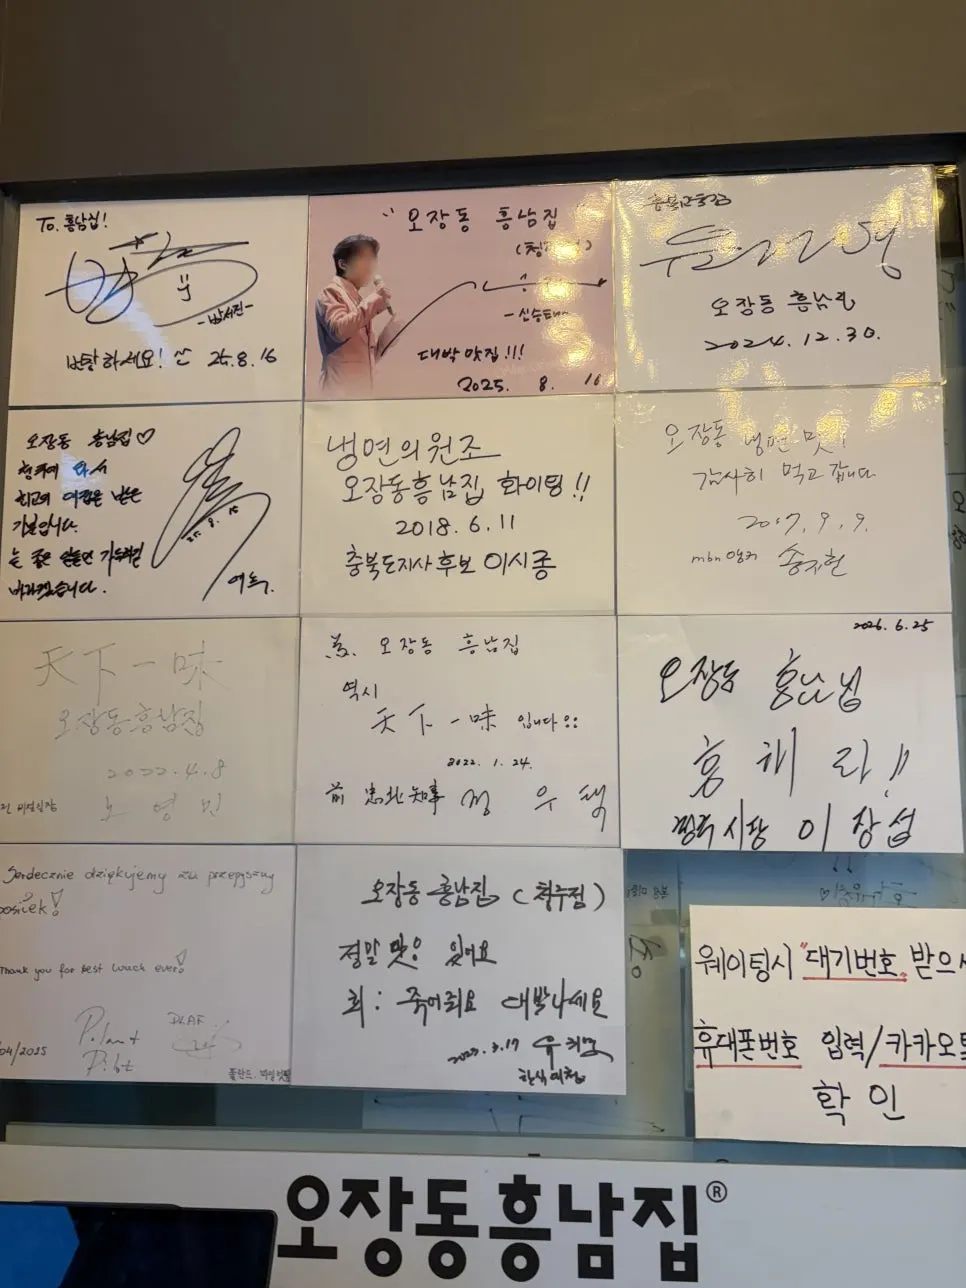 To. 흥남집!
-박서진-
번창하세요! 25.8.16
"오장동 흥남집"
대박 맛집!!!
2025. 8. 16
오장동 흥남집
2024.12.30.
오장동 흥남집♡
청주에 와서
최고의 맛집은
기분입니다.
늘 좋은 일들만 가득하길
바라겠습니다.
25.8.16
냉면의 원조
오장동흥남집 화이팅!!
2018.6.11
충북도지사후보 이시종
오장동 냉면 맛!
감사히 먹고 갑니다
2017.9.9.
mbn 앵커 송지헌
天下一味
오장동흥남집
2022.4.8
노영민
오장동 흥남집
역시
天下一味 입니다
2022.1.24.
前 忠北知事 정우택
2026.6.25
오장동 흥남집
흥해라!!
청주시장 이장섭
Serdecznie dziękujemy za przepyszny
posiłek!
Thank you for best lunch ever!
/04/2025
Poland
Pilot
오장동흥남집 (청주점)
정말 맛이 있어요
죽여줘요 대박나세요
웨이팅시 "대기번호" 받으
휴대폰번호 입력/카카오톡
확인
오장동흥남집®